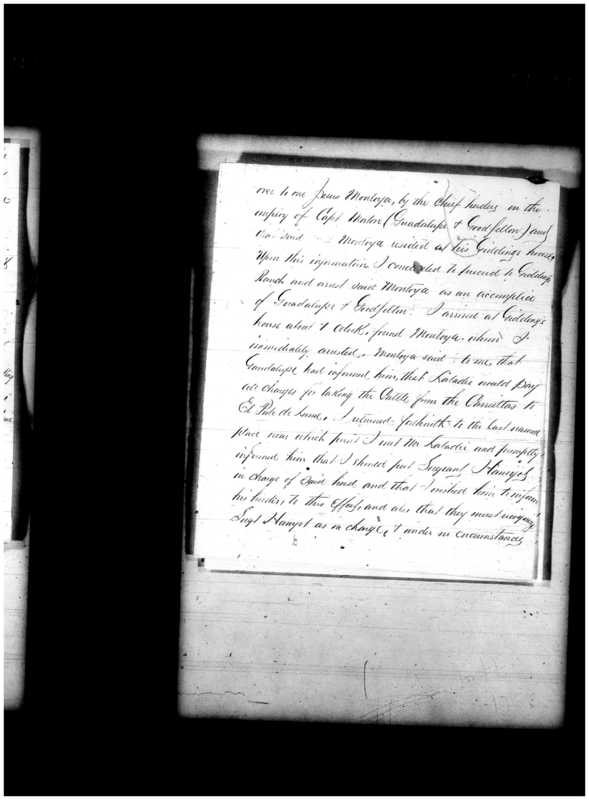 over to one Jesus Montoya, by the chief herders in the
employ of Capt Waton (Guadalupe & Goodfellow) and
that said Montoya resided at his Giddings house,
Upon this information I concluded to proceed to Giddings
Ranch and arrest said Montoya as an accomplice
of Guadalupe & Goodfellow. I arrived at Giddings
house about 7 oclock, found Montoya, whom I
immediately arrested. Montoya said to me, that
Guadalupe had informed him, that Kalador would pay
all charges for taking the Cattle from the Carritas to
El Paso de Luna. I returned forthwith to the last named
place near which point I met Mr Kalador and promptly
informed him that I should put Sergeant
in charge of said herd and that I wished him to inform
his herders to this effect, and also that they must recognize
Sergt as in charge, & under no circumstances